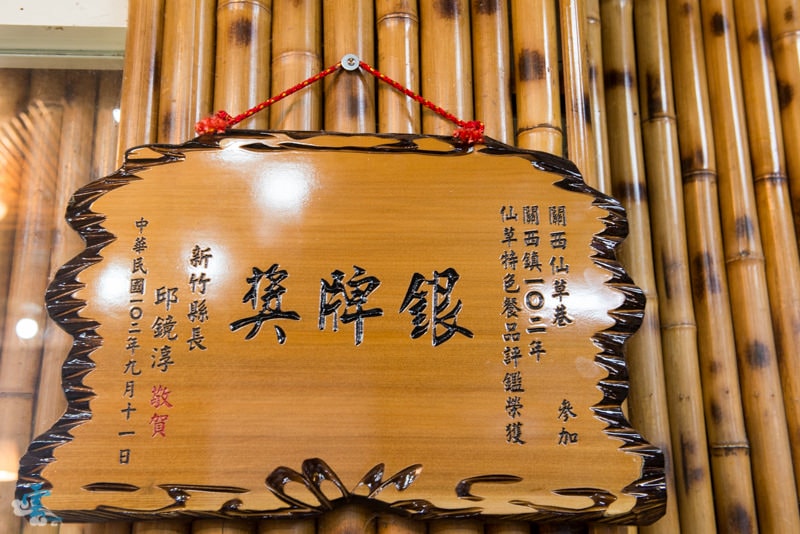 關西仙草巷　參加
關西鎮一〇二年
仙草特色餐品評鑑榮獲
銀牌獎
新竹縣長
邱鏡淳 敬賀
中華民國一〇二年九月十一日